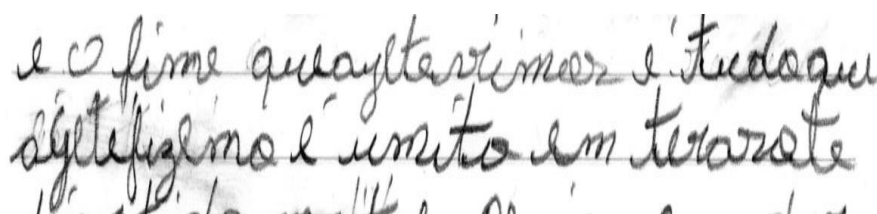 e o fime queagltevrimos é tudoque
agltéfizemo é umito em terarate